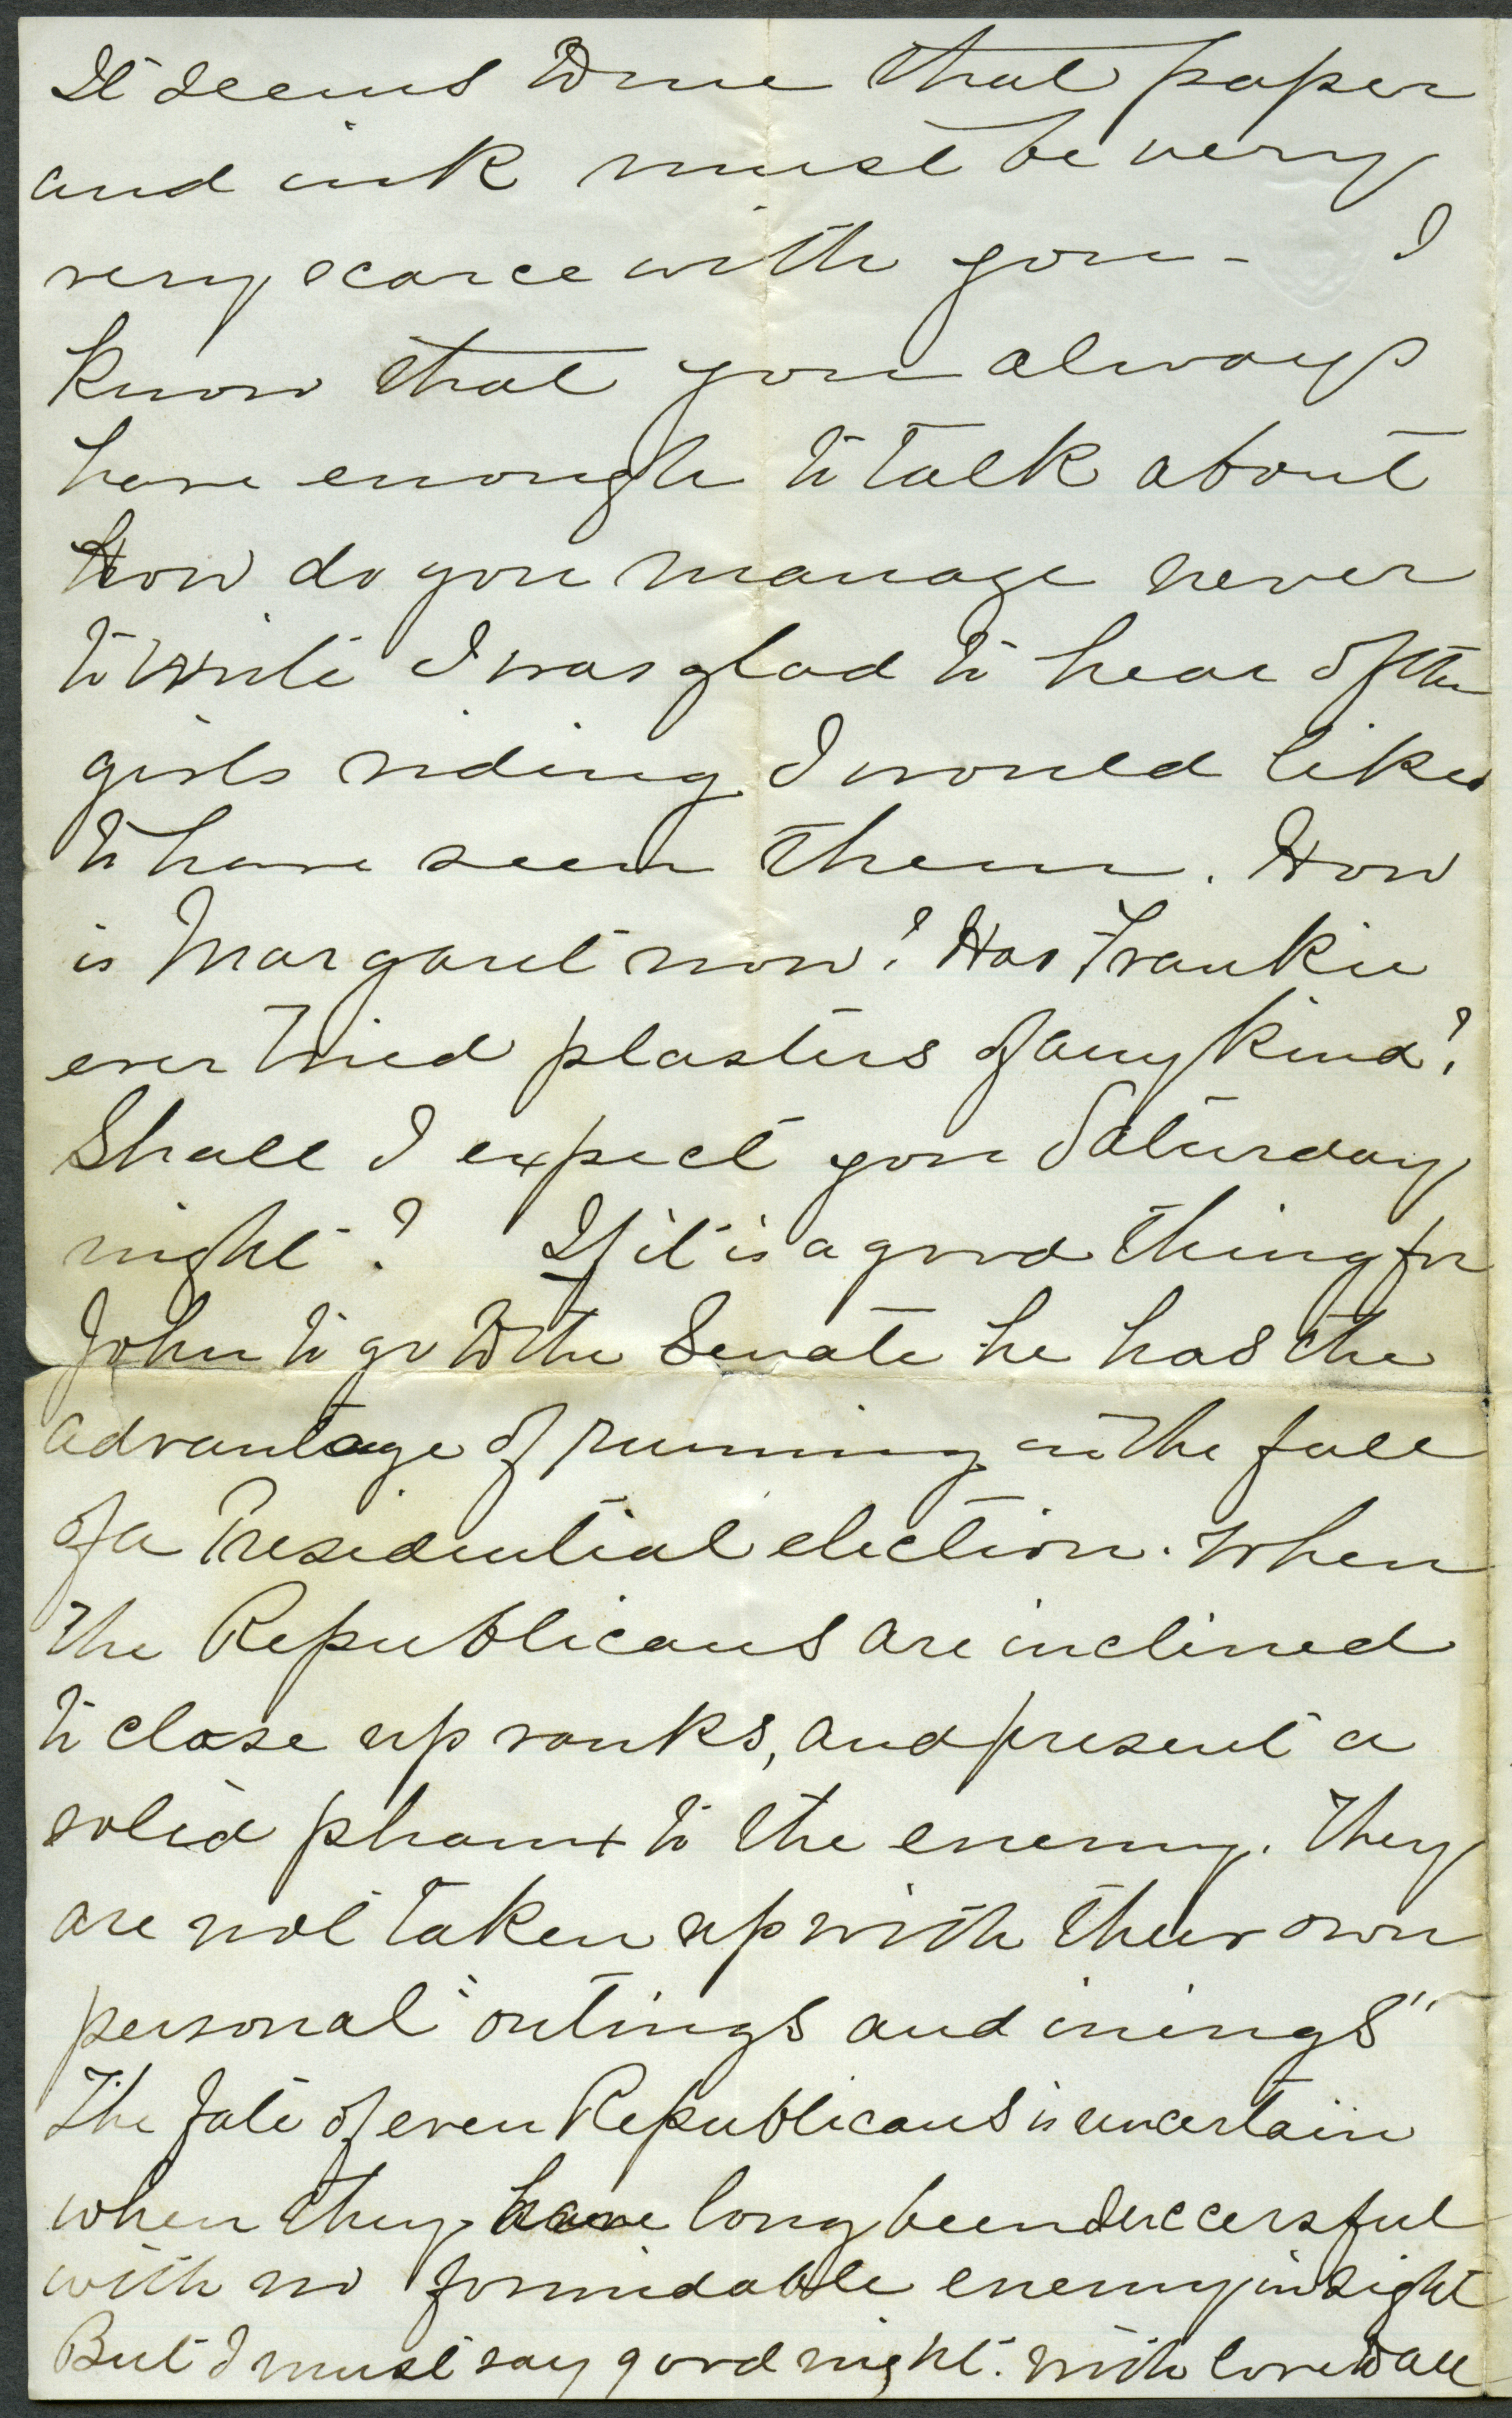 It seems to me that paper
and ink must be very
very scarce with you - I
know that you always
have enough to talk about
How do you manage never
to write I was glad to hear of the
girls riding I would like
to have seen them. How
is Margaret now? Has Frankie
ever tried plasters of any kind?
Shall I expect you Saturday
night? If it is a good thing for
John to go to the Senate he has the
advantage of running in the fall
of a Presidential election. When
the Republicans are inclined
to close up ranks, and present a
solid phanx to the enemy. They
are not taken up with their own
personal "outings and inings"
The fate of even Republicans is uncertain
when they have long been successful
with no formidable enemy in sight
But I must say good night. With love to all